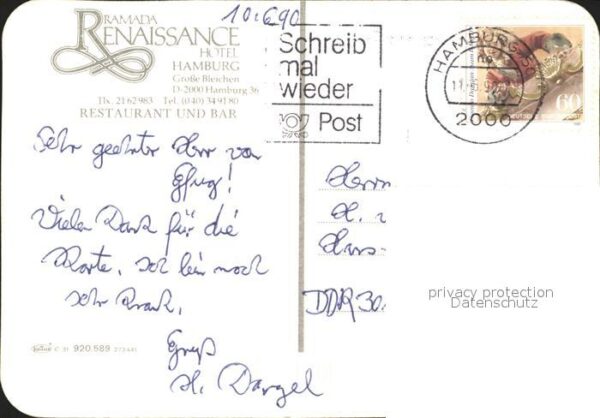 10.6.90
RAMADA
RENAISSANCE
HOTEL
HAMBURG
Große Bleichen
D-2000 Hamburg 36
Tlx. 2162983 Tel. (040) 34 91 80
RESTAURANT UND BAR
Schreib
mal
wieder
Post
HAMBURG
2000
60
Sehr geehrter Herr von
Vielen Dank für die
Karte. Ich bin noch
sehr krank.
Gruß
H. Dargel
Herrn
H.
DDR 30
privacy protection
Datenschutz
C 51 920.589